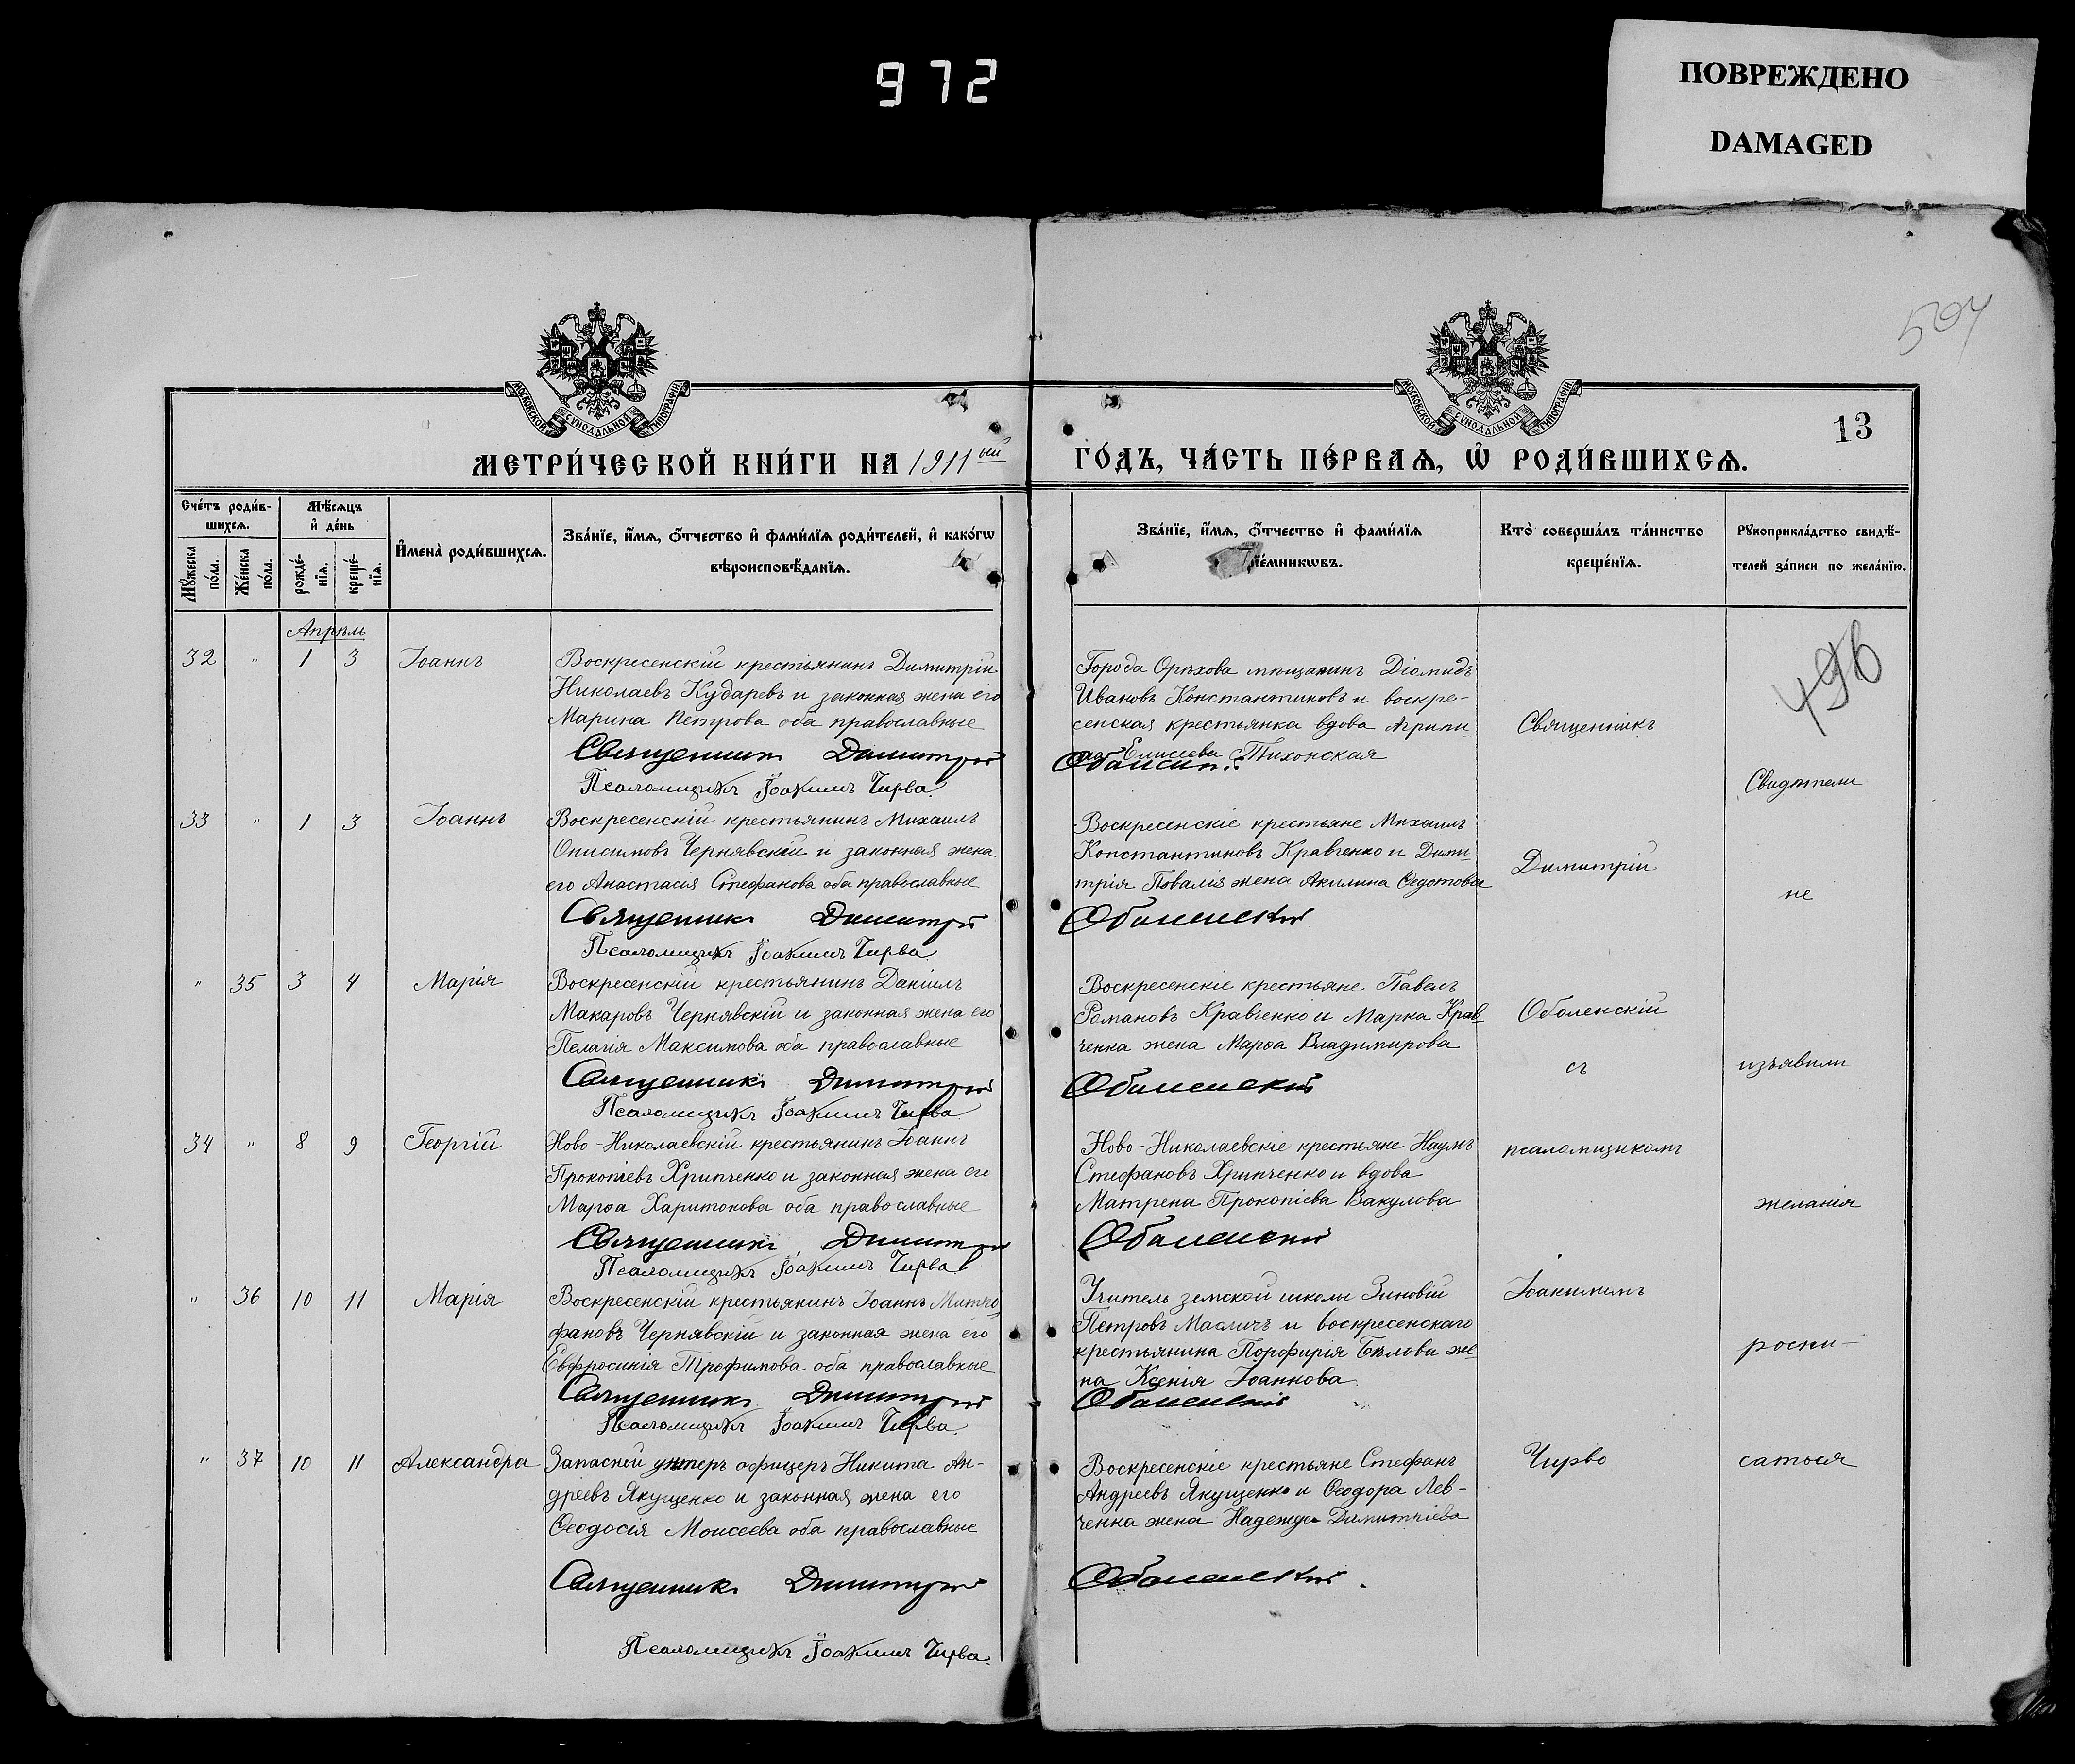 972
ПОВРЕЖДЕНО
DAMAGED
504
МОСКОВСКОЙ СѴНОДАЛЬНОЙ ТИПОГРАФІИ
МОСКОВСКОЙ СѴНОДАЛЬНОЙ ТИПОГРАФІИ
13
МЕТРИ́ЧЕСКОЙ КНИ́ГИ НА 1911 ый
ГО́ДЪ, ЧА́СТЬ ПЕ́РВАѦ, Ѡ҆ РОДИ́ВШИХСѦ.
Сче́тъ роди́в-
шихсѧ.
Мѣ́сѧцъ
и҆ де́нь
Мꙋ́жеска
по́ла.
Же́нска
по́ла.
рожде́-
нїѧ.
креще́-
нїѧ.
И҆мена̀ роди́вшихсѧ.
Зва́нїе, и҆́мѧ, ѻ҆́тчество и҆ фами́лїѧ роди́телей, и҆ како́гѡ
вѣроисповѣ́данїѧ.
Зва́нїе, и҆́мѧ, ѻ҆́тчество и҆ фами́лїѧ
рїе́мникѡвъ.
Кто̀ соверша́лъ та́инство
креще́нїѧ.
Рꙋкоприкла́дство свидѣ́-
телей за́писи по жела́нїю.
Апрѣль
496
32 " 1 3 Іоаннъ
Воскресенскій крестьянинъ Димитрій
Николаевъ Кударевъ и законная жена его
Марина Петрова оба православные
Священникъ Димитрій
Псаломщикъ Іоакимъ Чирва.
Города Орѣхова мѣщанинъ Діомидъ
Ивановъ Константиновъ и воскре-
сенская крестьянка вдова Агрипи-
на Елисеева Тихонская
33 " 1 3 Іоаннъ
Воскресенскій крестьянинъ Михаилъ
Онисимовъ Чернявскій и законная жена
его Анастасія Стефанова оба православные
Священникъ Димитрій
Псаломщикъ Іоакимъ Чирва.
Воскресенскіе крестьяне Михаилъ
Константиновъ Кравченко и Дими-
трія Повалія жена Акилина Ѳедотова
Оболенскій
" 35 3 4 Марія
Воскресенскій крестьянинъ Даніилъ
Макаровъ Чернявскій и законная жена его
Пелагія Максимова оба православные
Священникъ Димитрій
Псаломщикъ Іоакимъ Чирва
Воскресенскіе крестьяне Павелъ
Романовъ Кравченко и Марка Крав-
ченка жена Марѳа Владимирова
Оболенскій
34 " 8 9 Георгій
Ново-Николаевскій крестьянинъ Іоаннъ
Прокопіевъ Хрипченко и законная жена его
Марѳа Харитонова оба православные
Священникъ Димитрій
Псаломщикъ Іоакимъ Чирва.
Ново-Николаевскіе крестьяне Наумъ
Стефановъ Хрипченко и вдова
Матрена Прокопіева Вакулова
Оболенскій
" 36 10 11 Марія
Воскресенскій крестьянинъ Іоаннъ Митро-
фановъ Чернявскій и законная жена его
Евфросинія Трофимова оба православные
Священникъ Димитрій
Псаломщикъ Іоакимъ Чирва.
Учитель земской школы Зиновій
Петровъ Масличъ и воскресенскаго
крестьянина Порфирія Бѣлова же-
на Ксенія Іоаннова.
Оболенскій
" 37 10 11 Александра
Запасной унтеръ офицеръ Никита Ан-
дреевъ Якущенко и законная жена его
Ѳеодосія Моисеева оба православные
Священникъ Димитрій
Псаломщикъ Іоакимъ Чирва.
Воскресенскіе крестьяне Стефанъ
Андреевъ Якущенко и Ѳеодора Лев-
ченка жена Надежда Димитріева
Оболенскій.
Священникъ
Димитрій
Оболенскій
съ
псаломщикомъ
Іоакимомъ
Чирво
Свидѣтели
не
изъявили
желанія
роспи-
саться